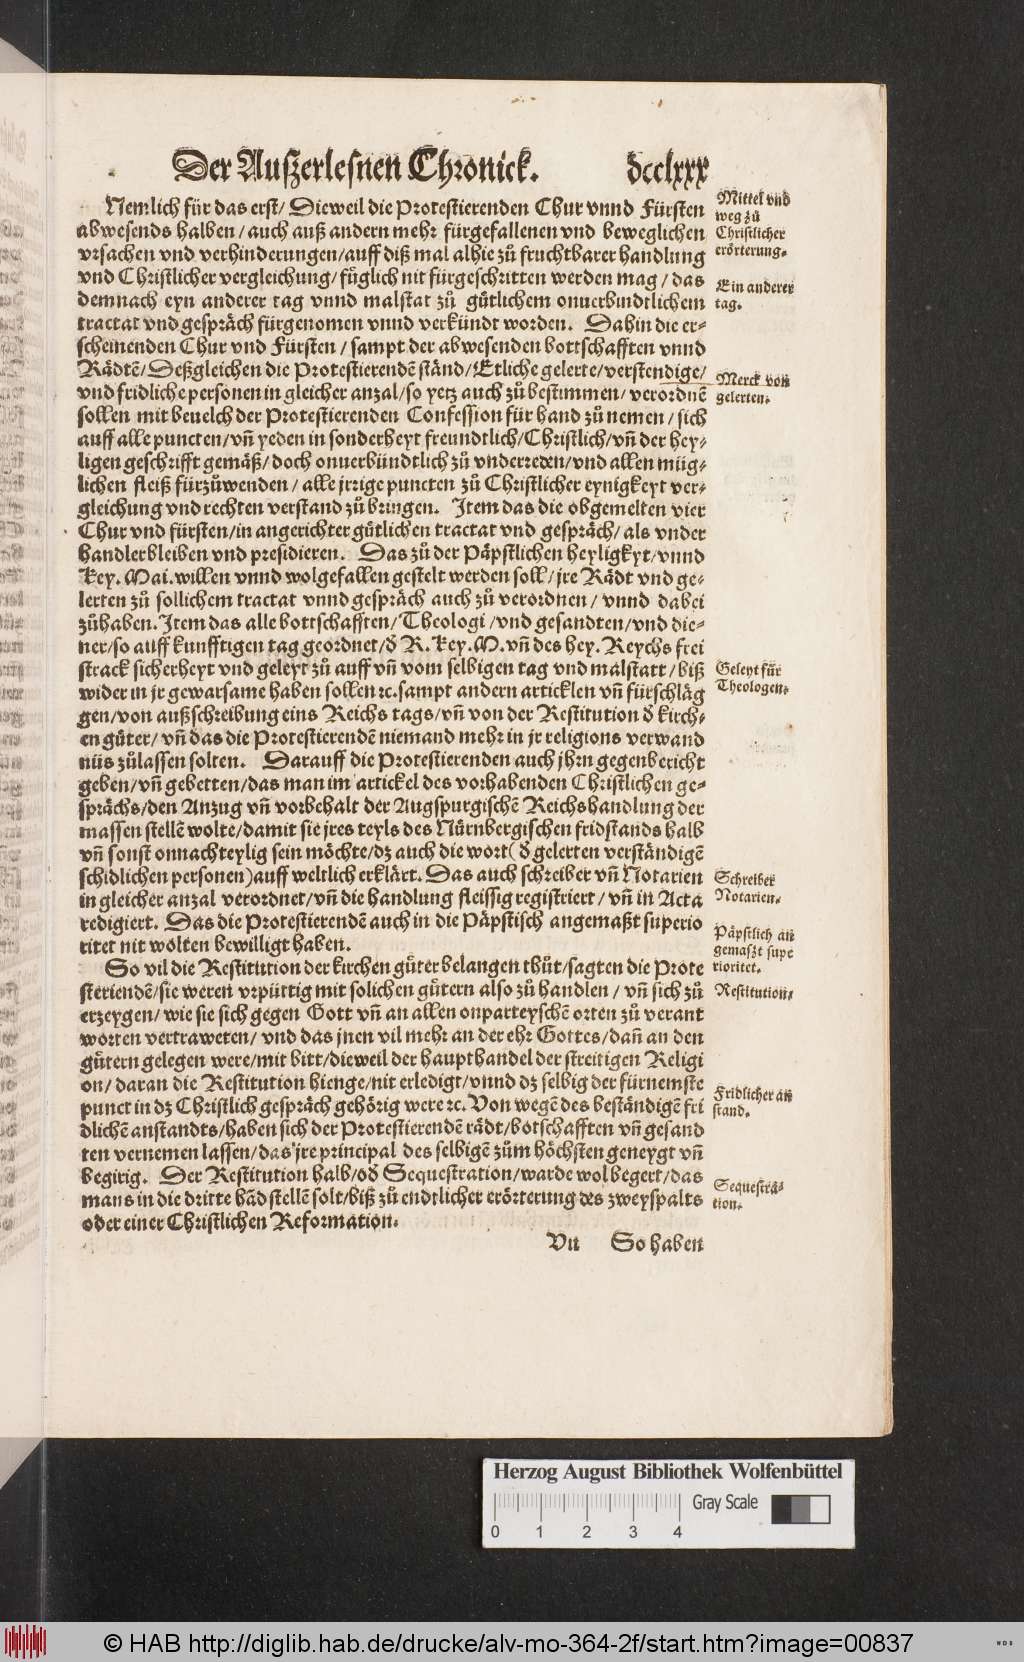 Der Auszerlesnen Chronick. dcclxxx
Nemlich für das erst/ Dieweil die Protestierenden Chur vnnd Fürsten
abwesends halben / auch auß andern mehr fürgefallenen vnd beweglichen
vrsachen vnd verhinderungen/auff diß mal alhie zů fruchtbarer handlung
vnd Christlicher vergleichung/ füglich nit fürgeschritten werden mag / das
demnach eyn anderer tag vnnd malstat zů gütlichem onuerbindtlichem
tractat vnd gespräch fürgenomen vnnd verkündt worden. Dahin die er-
scheinenden Chur vnd Fürsten / sampt der abwesenden bottschafften vnnd
Rädtē/ Deßgleichen die Protestierendē ständ/ Etliche gelerte/verstendige/
vnd fridliche personen in gleicher anzal/so yetz auch zů bestimmen/ verordnē
sollen mit beuelch der Protestierenden Confession für hand zů nemen / sich
auff alle puncten/vñ yeden in sonderheyt freundtlich/Christlich/vñ der hey-
ligen geschrifft gemäß/ doch onuerbündtlich zů vnderreden/vnd allen müg-
lichen fleiß fürzůwenden / alle jrrige puncten zů Christlicher eynigkeyt ver-
gleichung vnd rechten verstand zů bringen. Item das die obgemelten vier
Chur vnd fürsten/in angerichter gütlichen tractat vnd gespräch/ als vnder
handler bleiben vnd presidieren. Das zů der Päpstlichen heyligkyt/vnnd
Key. Mai. willen vnnd wolgefallen gestelt werden soll/ jre Rädt vnd ge-
lerten zů sollichem tractat vnnd gespräch auch zů verordnen / vnnd dabei
zůhaben. Item das alle bottschafften/ Theologi /vnd gesandten/vnd die-
ner/so auff kunfftigen tag geordnet/d̄ R. Key. M. vñ des hey. Reychs frei
strack sicherheyt vnd geleyt zů auff vñ vom selbigen tag vnd malstatt / biß
wider in jr gewarsame haben sollen ꝛc. sampt andern articklen vñ fürschläg
gen/von außschreibung eins Reichs tags/vñ von der Restitution d̄ kirch-
en güter/ vñ das die Protestierendē niemand mehr in jr religions verwand
nüs zůlassen solten. Darauff die Protestierenden auch jhrn gegenbericht
geben/vñ gebetten/das man im artickel des vorhabenden Christlichen ge-
sprächs/den Anzug vñ vorbehalt der Augspurgischē Reichshandlung der
massen stellē wolte/damit sie jres teyls des Nürnbergischen fridstands halb
vñ sonst onnachteylig sein möchte/dz auch die wort (d̄ gelerten verständigē
schidlichen personen) auff weltlich erklärt. Das auch schreiber vñ Notarien
in gleicher anzal verordnet/vñ die handlung fleissig registriert / vñ in Acta
redigiert. Das die Protestierendē auch in die Päpstisch angemaßt superio
ritet nit wölten bewilligt haben.
So vil die Restitution der kirchen güter belangen thůt/sagten die Prote
stierendē/sie weren vrpüttig mit solichen gütern also zů handlen / vñ sich zů
erzeygen/ wie sie sich gegen Gott vñ an allen onparteyschē orten zů verant
worten vertraweten/ vnd das jnen vil mehr an der ehr Gottes/ dañ an den
gütern gelegen were/mit bitt/dieweil der haupthandel der streitigen Religi
on/ daran die Restitution hienge/nit erledigt/vnnd dz selbig der fürnemste
punct in dz Christlich gespräch gehörig were ꝛc. Von wegē des beständigē fri
dlichē anstandts/haben sich der Protestierendē rädt/botschafften vñ gesand
ten vernemen lassen/das jre principal des selbigē zům höchsten geneygt vñ
begirig. Der Restitution halb/od̄ Sequestration/warde wol begert/das
mans in die dritte hād stellē solt/biß zů endtlicher erörterung des zweyspalts
oder einer Christlichen Reformation.
Vu So haben
Mittel vnd
weg zů
Christlicher
erörterung.
Ein anderer
tag.
Merck von
gelerten.
Geleyt für
Theologen.
Schreiber
Notarien.
Päpstlich an
gemaßt supe
rioritet.
Restitution.
Fridlicher an
stand.
Sequestra-
tion.
Herzog August Bibliothek Wolfenbüttel
Gray Scale
0 1 2 3 4
© HAB http://diglib.hab.de/drucke/alv-mo-364-2f/start.htm?image=00837